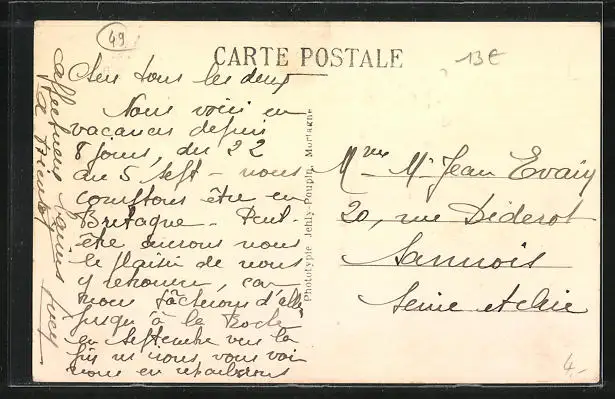 49
CARTE POSTALE
13€
Chers tous les deux
Nous voici en
vacances depuis
8 jours, du 22
au 5 Sept - nous
comptons être en
Bretagne - Peut-
être aurons nous
le plaisir de nous
y retrouver, car
nous tâcherons d'aller
jusqu'à la Roche
en Septembre vers la
fin si nous vous
nous en reparlerons
affectueux baisers
à bientôt
Lucy
Phototypie Jehly-Poupin, Mortagne
Mme Mr Jean Evain
20, rue Diderot
Sannois
Seine et Oise
4.-